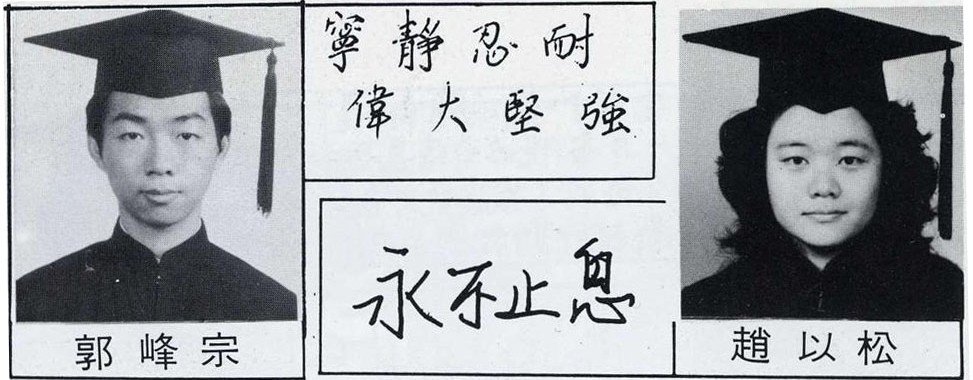 寧靜忍耐
偉大堅強
永不止息
郭峰宗
趙以松